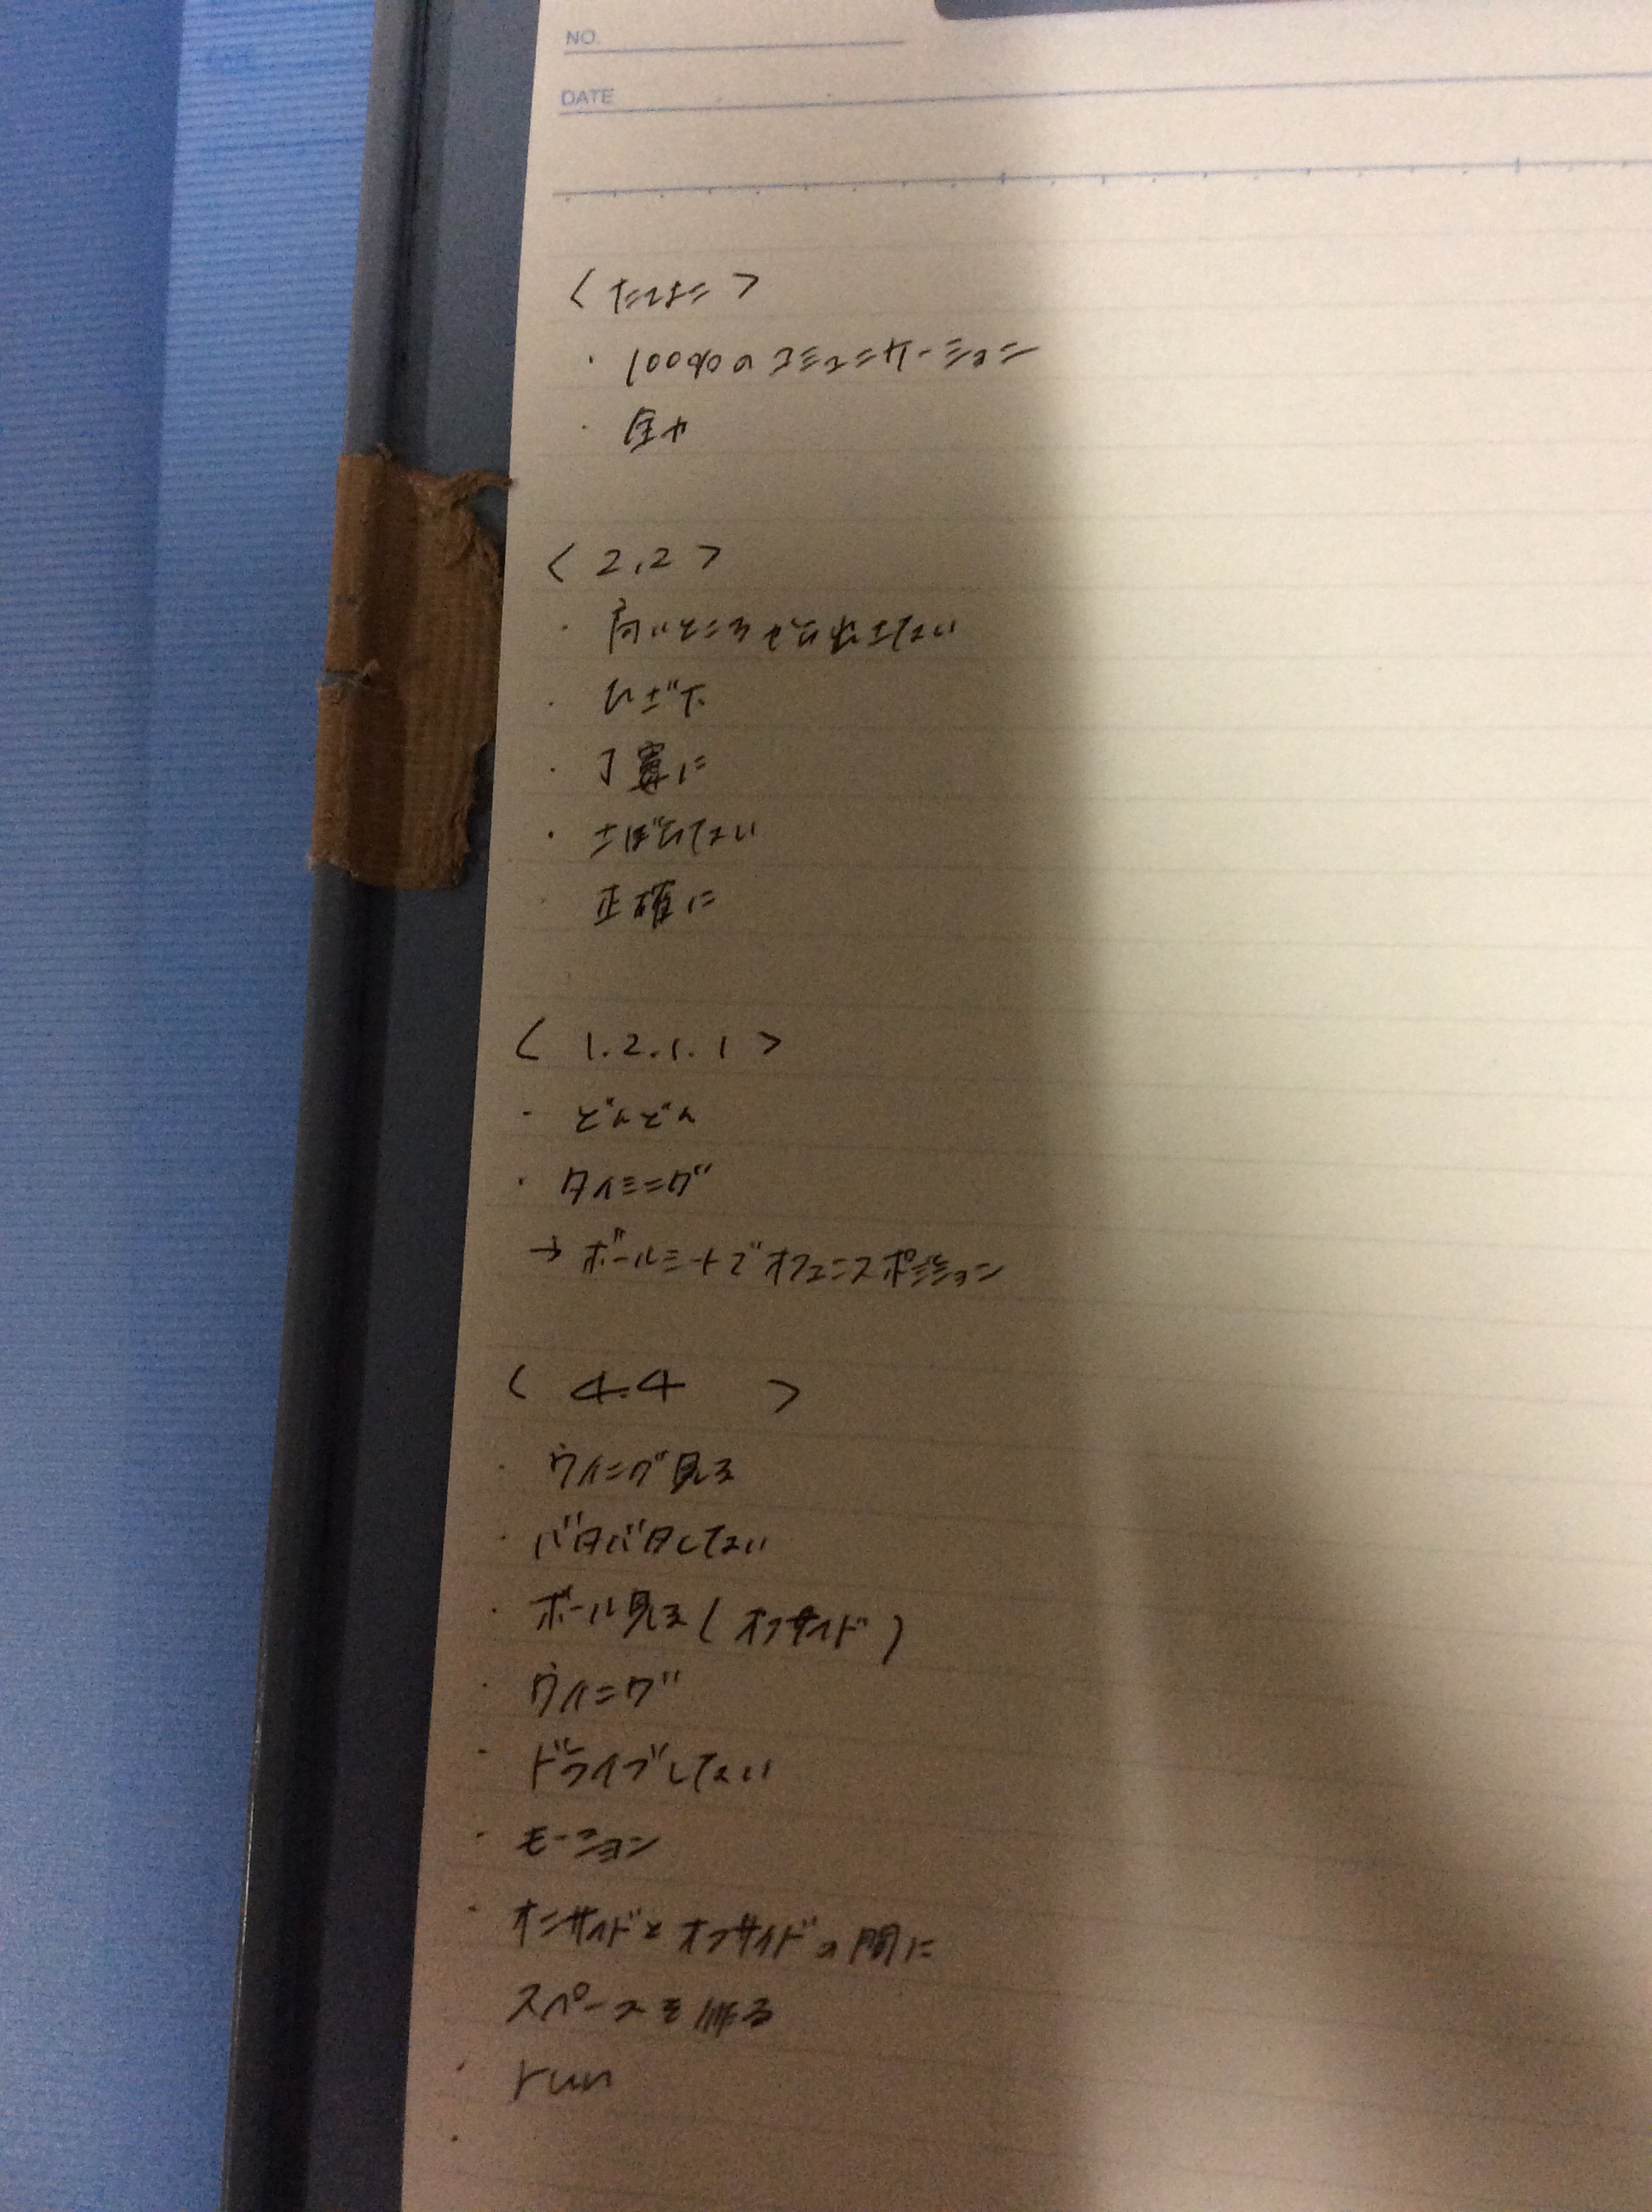 NO.
DATE
< >
・100%のコミュニケーション
・全力
< 2.2 >
・高いところで
・ひざ下
・丁寧に
・さぼらない
・正確に
< 1.2.1.1 >
・どんどん
・タイミング
→ ボールミートでオフェンスポジション
< 4.4 >
・ウイング見る
・バタバタしない
・ボール見る(オフサイド)
・ウイング
・ドライブしない
・モーション
・オンサイドとオフサイドの間に
スペースを作る
・run
・